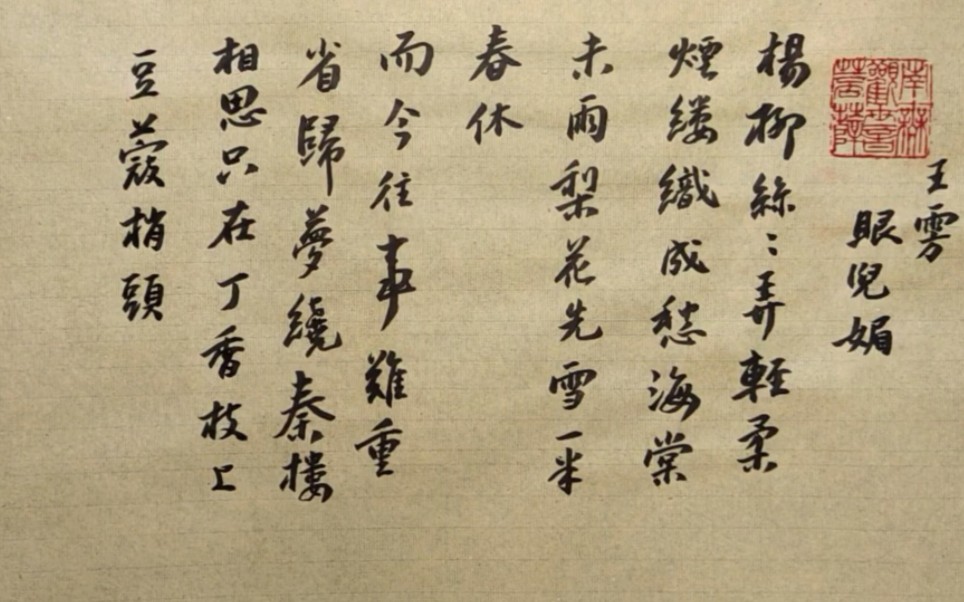 王雱
眼兒媚
楊柳絲〻弄輕柔
煙縷織成愁海棠
未雨梨花先雪一半
春休
而今往事難重
省歸夢繞秦樓
相思只在丁香枝上
豆蔻梢頭